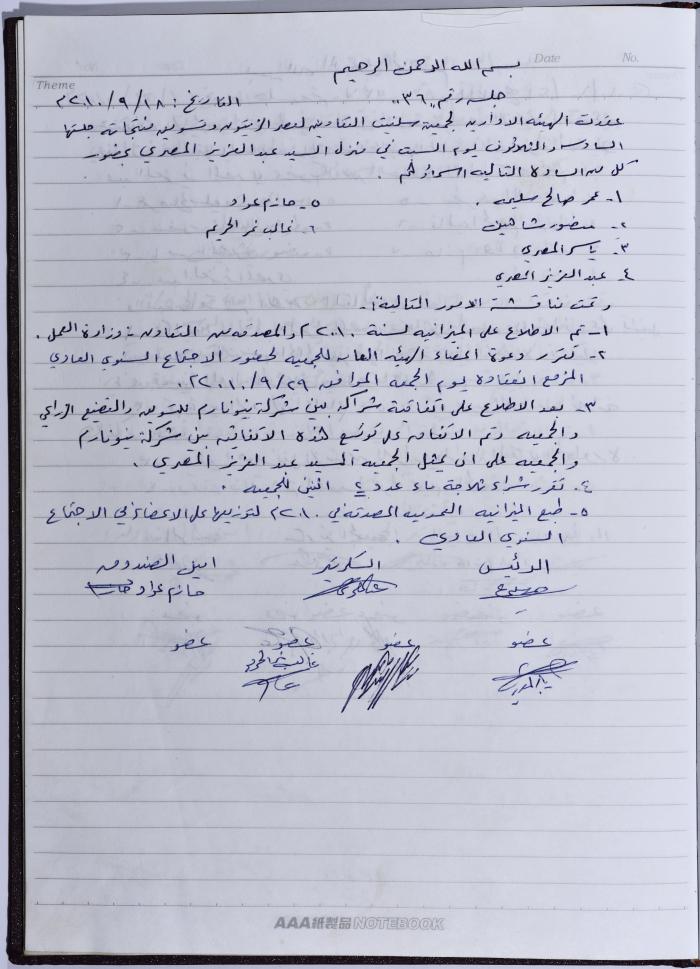 Date No.
Theme
بسم الله الرحمن الرحيم
جلسه رقم "٣٦" التاريخ: ١٨/٩/٢٠١٠م
عقدت الهيئه الاداريه لجمعية سلفيت التعاونيه لعصر الزيتون وتسويق منتجاته جلستها
السادسه والثلاثون يوم السبت في منزل السيد عبد العزيز المصري بحضور
كل من الساده التاليه اسماؤهم
١- عمر صالح سليمه . ٥- حازم عواد
٢- منصور شاهين ٦- غالب نمر الحريم
٣- ياسر المصري
٤- عبد العزيز المصري
وتمت مناقشة الامور التالية:-
١- تم الاطلاع على الميزانيه لسنة ٢٠١٠م والمصدقه من التعاون - وزارة العمل .
٢- تقرر دعوة اعضاء الهيئه العامه للجمعيه لحضور الاجتماع السنوي العادي
المزمع انعقاده يوم الجمعه الموافق ٢٩/٩/٢٠١٠م.
٣- بعد الاطلاع على اتفاقية شراكه بين شركة زيونارم للتسويق والتصنيع الزراعي
والجمعيه وتم الاتفاق على توقيع هذه الاتفاقيه بين شركة زيونارم
والجمعيه على ان يمثل الجمعيه السيد عبد العزيز المصري .
٤- تقرر شراء ثلاجة ماء عدد ٢ اثنين للجمعيه .
٥- طبع الميزانيه العموميه المصدقه في ٢٠١٠م لتوزيعها على الاعضاء في الاجتماع
السنوي العادي .
الرئيس السكرتير امين الصندوق
حازم عواد
عضو عضو عضو عضو
AAA紙製品 NOTEBOOK